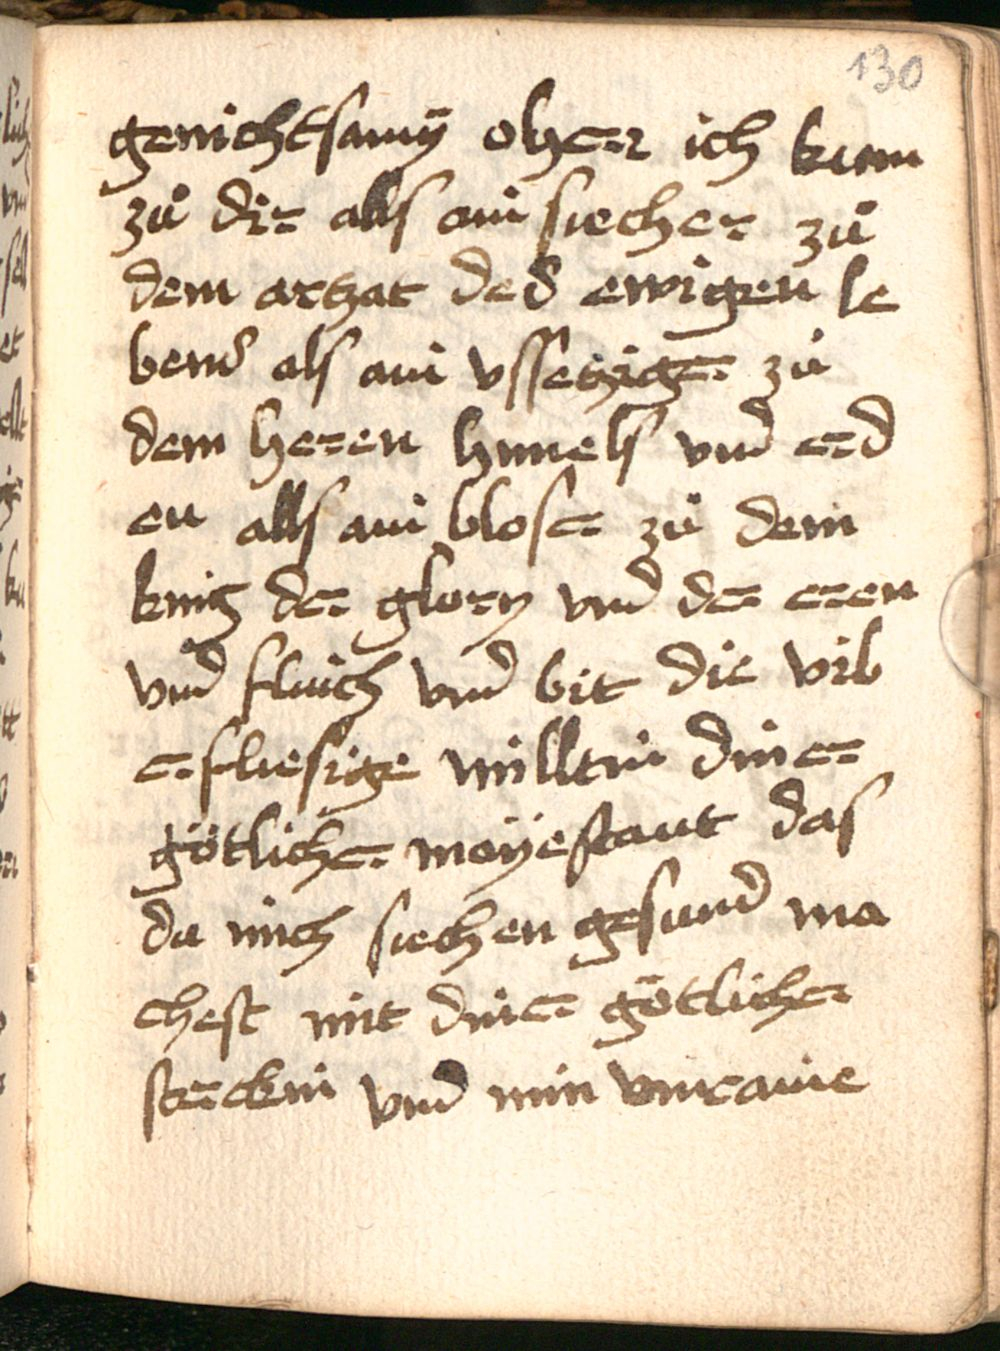 130
genichtsamy o her ich kum
zů dir alls ain siecher zů
dem arhzat des ewigen le
bens als ain vssetziger zů
dem heren himels vnd erd
en alls ain bloser zů dem
knig der glory vnd der eren
vnd fluich vnd bit die vib
erfliesige milltin diner
götlicher mayestaut das
du mich siechen gesund ma
chest mit diner götlicher
sterckin vnd min vnraine